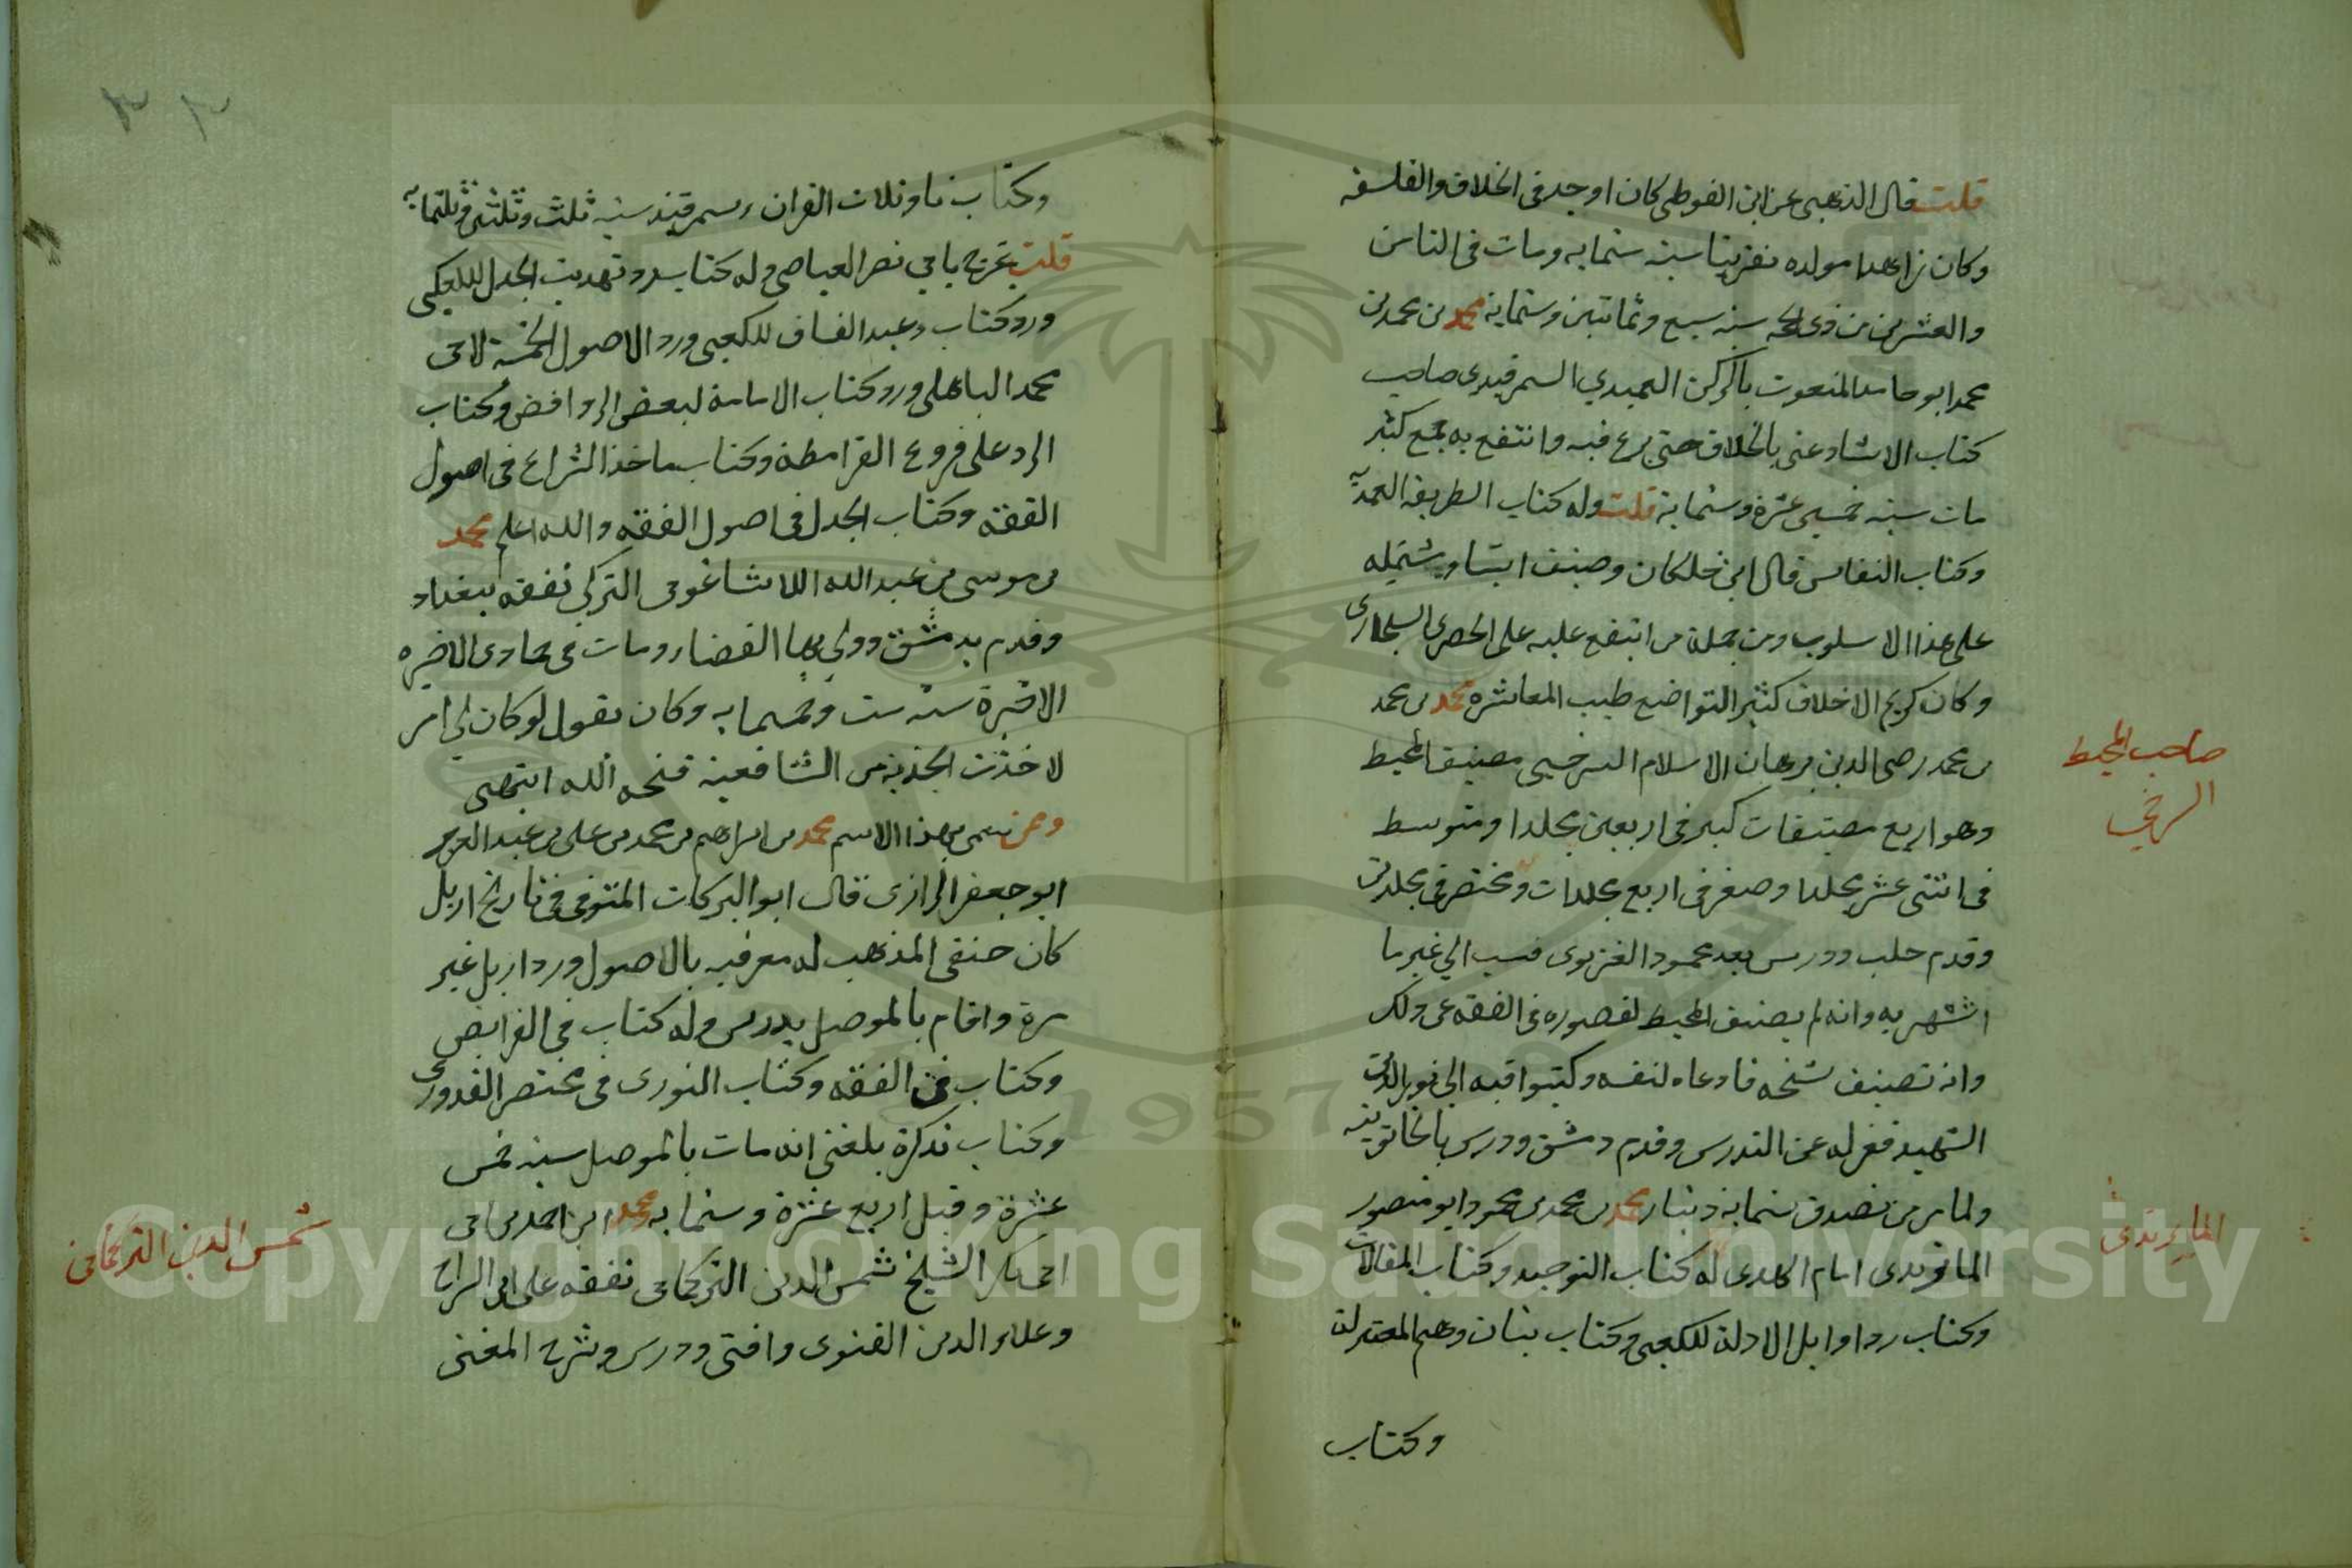 قلت قال الذهبي عن ابن الفوطي كان اوحد في الخلاف والفلسفه
وكان زاهدا مولده تقريبا سنه ستمايه ومات في الثامن
والعشرين من ذي الحجه سنه سبع وثمانين وستمايه محمد بن محمد بن
محمد ابو حامد المنعوت بالركن العميدي السمرقندي صاحب
كتاب الارشاد عني بالخلاف حتى برع فيه وانتفع به جمع كثير
مات سنه خمس عشرة وستمايه قلت وله كتاب الطريقه العميديه
وكتاب النفايس قال ابن خلكان وصنف اشياء مشتمله
على هذا الاسلوب ومن جملة من انتفع عليه على الحصري البخاري
وكان كريم الاخلاق كثير التواضع طيب المعاشره محمد بن محمد
بن محمد رضى الدين برهان الاسلام السرخسي مصنف المحيط
وهو اربع مصنفات كبير في اربعين مجلدا ومتوسط
في اثنتى عشر مجلدا وصغير في اربع مجلدات ومختصر في مجلدين
وقدم حلب ودرس بعد محمود الغزنوى فنسب الي غير ما
اشتهر به وانه لم يصنف المحيط لقصوره في الفقه عن ذلك
وانه تصنيف شيخه فادعاه لنفسه وكتبوا فيه الى نور الدين
الشهيد فعزله عن التدريس وقدم دمشق ودرس بالخاتونيه
ولما مرض تصدق بستمايه دينار محمد بن محمد بن محمود ابو منصور
الماتريدى امام الهدى له كتاب التوحيد وكتاب المقالات
وكتاب رد اوايل الادلة للكعبي وكتاب بيان وهم المعتزلة
وكتاب
صاحب المحيط
السرخسي
الماتريدى
وكتاب تاويلات القران بسمرقند سنه ثلث وثلثين وثلثمايه
قلت تخرج بابي نصر العياضي وله كتاب رد تهذيب الجدل للكعبي
ورد كتاب وعيد الفساق للكعبي ورد الاصول الخمسة لابي
محمد الباهلي ورد كتاب الامامة لبعض الروافض وكتاب
الرد على فروع القرامطة وكتاب ماخذ الشرايع في اصول
الفقه وكتاب الجدل في اصول الفقه والله اعلم محمد
بن موسى بن عبد الله اللامشاغوني التركي تفقه ببغداد
وقدم بدمشق وولي بها القضاء ومات في جمادى الاخيره
الاخيرة سنه ست وخمسمايه وكان يقول لو كان لي امر
لاخذت الجزيه من الشافعيه قبحه الله انتهى
وممن سمي بهذا الاسم محمد بن ابراهيم بن محمد بن علي بن عبد العزيز
ابو جعفر الرازى قال ابو البركات المتوفى في تاريخ اربل
كان حنفي المذهب له معرفه بالاصول ورد اربل غير
مرة واقام بالموصل يدرس وله كتاب في الفرايض
وكتاب في الفقه وكتاب النورى في مختصر القدورى
وكتاب تذكرة بلغني انه مات بالموصل سنه خمس
عشرة وقيل اربع عشرة وستمايه محمد ابن احمد بن ابي
ابي بكر الشيخ شمس الدين التركماني تفقه على ابن السراج
وعلاء الدين القنوى وافتى ودرس وشرح المغني
شمس الدين التركماني
٣٢
Copyright © King Saud University
1957